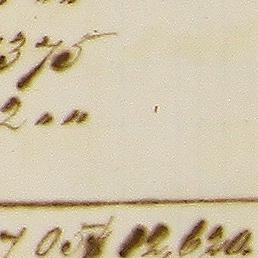 " "
375
2 " "
705 12,620.